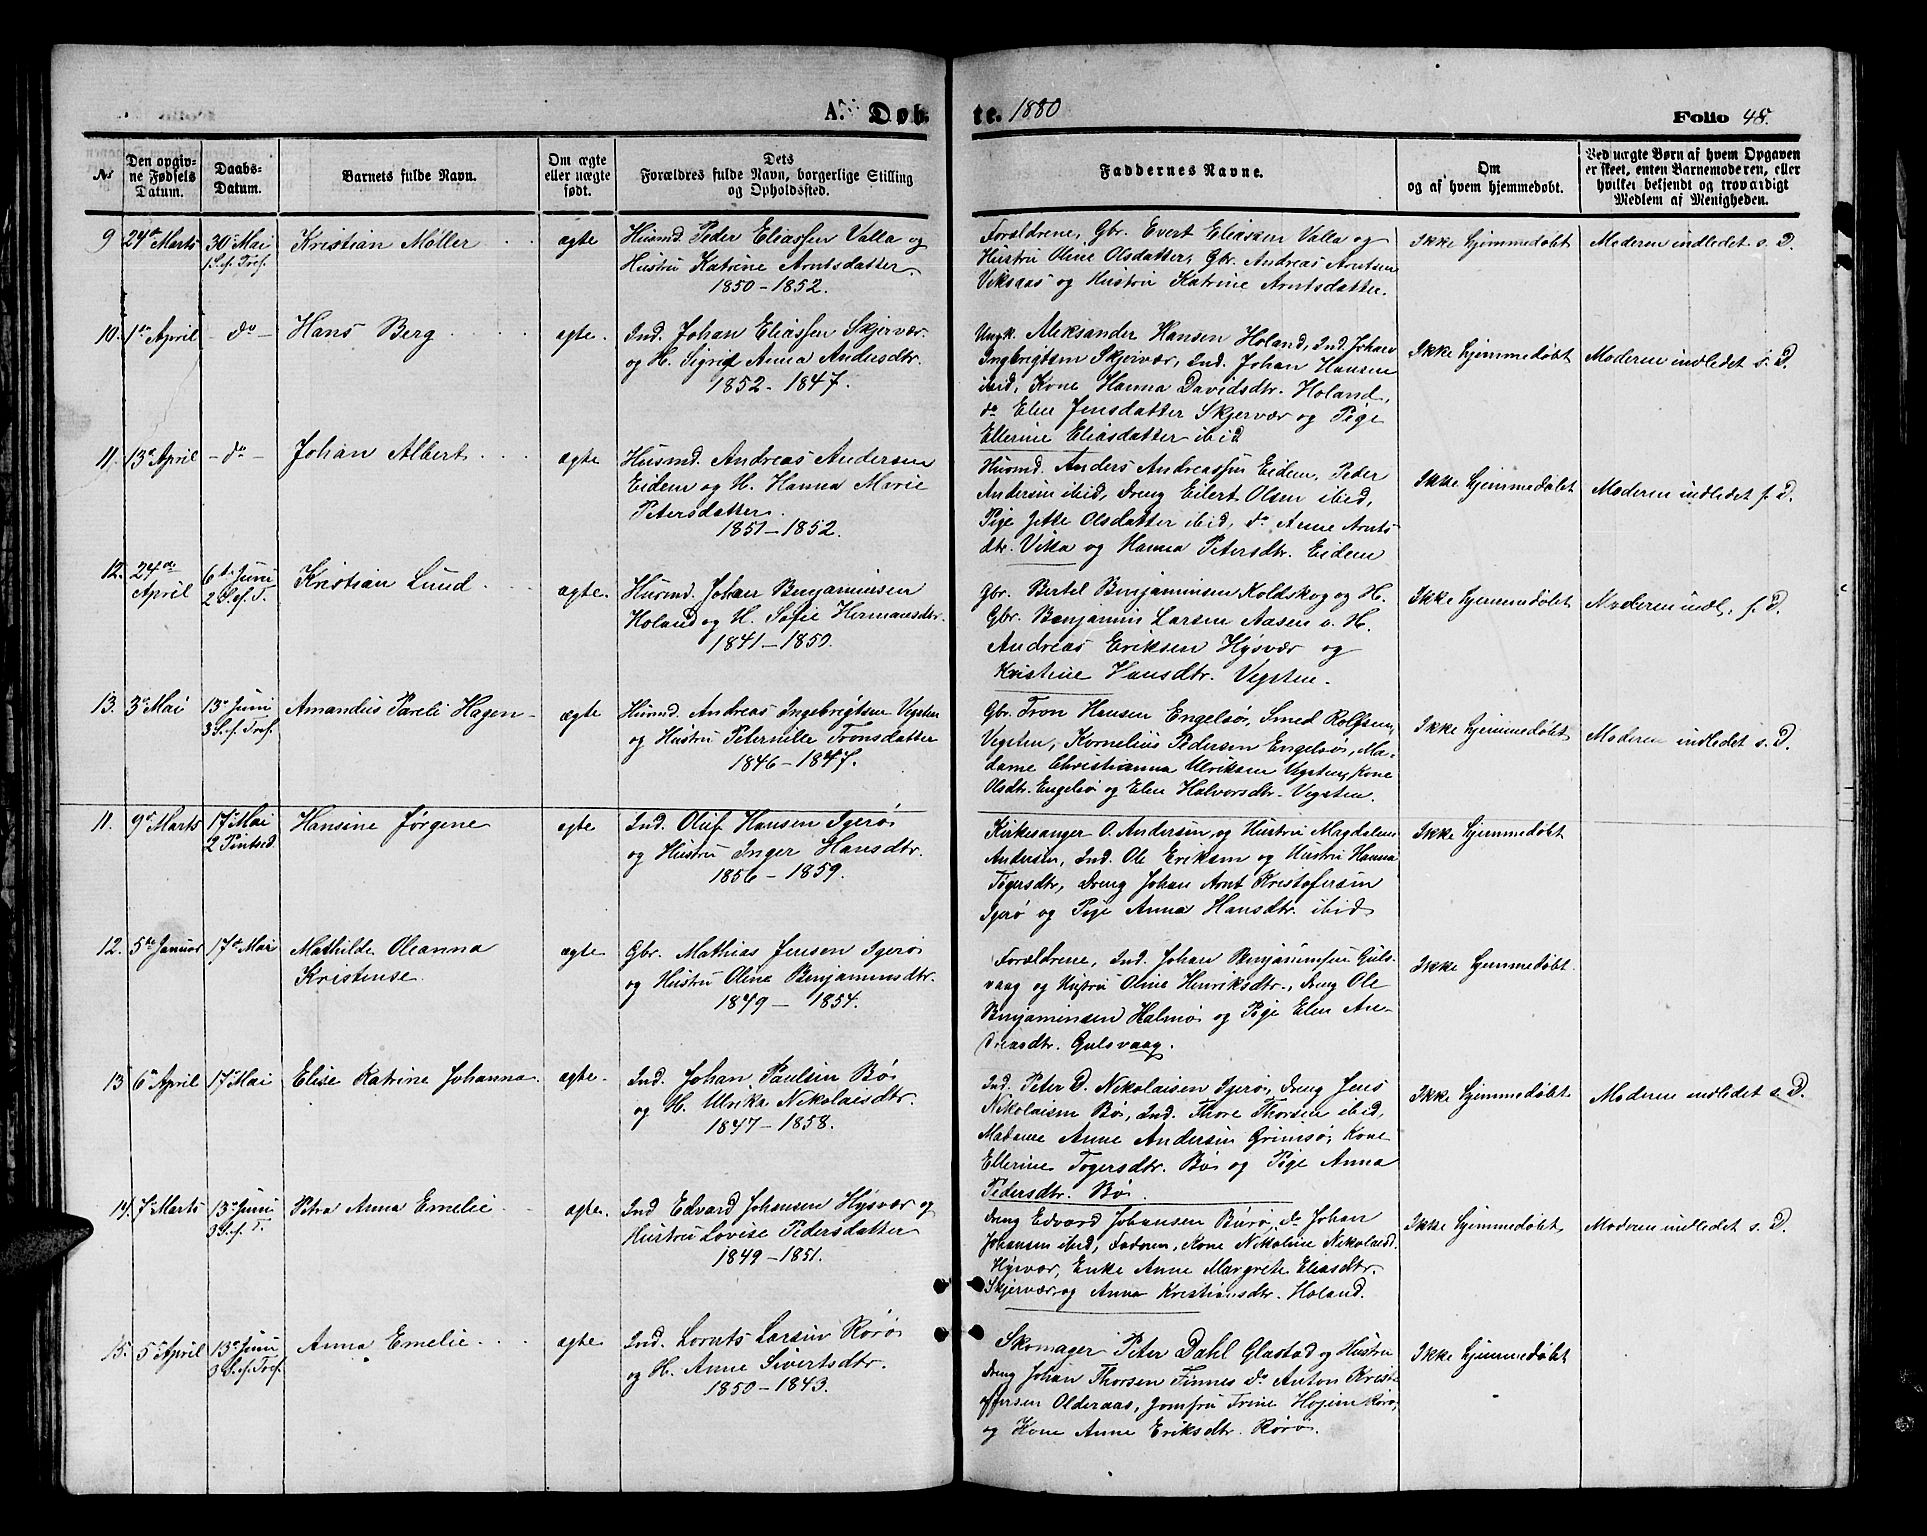 A. Døbte. 1880
Folio 48.
No
Den opgivne Fødsels Datum.
Daabs-Datum.
Barnets fulde Navn.
Om ægte eller uægte født.
Dets Forældres fulde Navn, borgerlige Stilling og Opholdssted.
Faddernes Navne.
Om og af hvem hjemmedøbt.
Ved uægte Børn af hvem Opgaven er skeet, enten Barnemoderen, eller hvilket bekjendt og troværdigt Medlem af Menigheden.
9 24de Marts 30te Mai Kristian Møller ægte Husmd. Peder Eliassen Valla og
1 S. ef. Tref. Hustru Katrine Arntsdatter.
1850 - 1852.
Forældrene, Gbr. Evert Eliassen Valla og
Hustru Oline Olsdatter, Gbr. Andreas Arntsen
Viksaas og Hustru Katrine Arntsdatter.
Ikke hjemmedøbt Moderen indledet s. D.
10. 1ste April - do - Hans Berg ægte. Ind. Johan Eliassen Skjervær
og H. Sigrid Anna Andersdtr.
1852 - 1847.
Ungk. Aleksander Hansen Holand, Ind. Johan
Ingbrigtsen Skjervær, Ind. Johan Hansen
ibid, Kone Hanna Davidsdtr. Holand,
do Elen Jensdatter Skjervær og Pige
Ellerine Eliasdatter ibid
Ikke hjemmedøbt Moderen indledet s. D.
11. 13de April - do - Johan Albert ægte Husmd. Andreas Andersen
Eidem og H. Hanna Marie
Petersdatter.
1851 - 1852.
Husmd. Anders Andreassen Eidem, Peder
Andersen ibid, Dreng Eilert Olsen ibid,
Pige Jette Olsdatter ibid, do Anne Arnts-
dtr. Vikka og Hanna Petersdtr. Eidem
Ikke hjemmedøbt Moderen indledet s. D.
12. 24de April 6te Juni Kristian Lund ægte. Husmd. Johan Benjaminsen
2 S. ef. T. Holand og H. Sofie Hermansdtr.
1841 - 1850.
Gbr. Bertel Benjaminsen Koldskog og H.
Gbr. Benjamin Larsen Aasen o. H.
Andreas Eriksen Hysvær og
Kristine Hansdtr. Vegsten.
Ikke hjemmedøbt Moderen indl. s. D.
13. 3die Mai 13de Juni Amandus Pareli Hagen ægte Husmd. Andreas Ingebrigtsen Vegsten
3 S. ef. Tref. og Hustru Peternille Tronsdatter
1846 - 1847.
Gbr. Tron Hansen Engelsø, Smed Rolfsen,
Vegsten, Kornelius Pedersen Engelsø, Ma-
dame Christianna Ulriksen Vegsten, Kone
Olsdtr. Engelsø og Elen Halvorsdtr. Vegsten.
Ikke hjemmedøbt Moderen indledet s. D.
11. 9de Marts 17de Mai Hansine Jørgene ægte Ind. Oluf Hansen Igerø
2 Pintsed. og Hustru Inger Hansdtr.
1856 - 1859.
Kirkesanger O. Andersen og Hustru Magdalena
Andersen, Ind. Ole Eriksen og Hustru Hanna
Togersdtr, Dreng Johan Arnt Kristofersen
Igerø og Pige Anna Hansdtr. ibid
Ikke hjemmedøbt
12. 5te Januar 17de Mai Mathilde Oleanna Kristense ægte Gbr. Mathias Jensen Igerø
og Hustru Oline Benjaminsdtr.
1849 - 1854.
Forældrene, Ind. Johan Benjaminsen Guls-
vaag og Hustru Oline Henriksdtr., Dreng Ole
Benjaminsen Halmø og Pige Elen An-
dreasdtr. Gulsvaag.
Ikke hjemmedøbt.
13 6te April 17de Mai Elise Katrine Johanna. ægte. Ind. Johan Paulsen Bø
og H. Ulrikke Nikolaisdtr.
1847 - 1858.
Ind. Peter D. Nikolaisen Igerø, Dreng Jens
Nikolaisen Bø, Ind. Thore Thorsen ibid,
Madame Anne Andersen Grimsø, Kone
Ellerine Togersdtr. Bø og Pige Anna
Pedersdtr. Bø.
Ikke hjemmedøbt Moderen indledet s. D.
14. 7de Marts 13de Juni Petra Anna Emelie ægte. Ind Edvard Johansen Hysvær og
3 S. ef. T. Hustru Lovise Pedersdatter
1849 - 1851.
Dreng Edvard Johansen Burø, do Johan
Johansen ibid, Faderen, Kone Nikoline Nikolaisd.
Hysvær, Enke Anne Margrete Eliasdtr.
Skjervær og Anna Kristiansdtr. Holand.
Ikke hjemmedøbt Moderen indledet s. D.
15. 5te April 13de Juni Anna Emelie ægte Ind. Lornts Larsen Rørø
3 S. ef. Tref. og H. Anne Sivertsdtr.
1850 - 1843.
Skomager Peter Dahl Glastad og Hustru
Dreng Johan Thorsen Finnes do Anton Krist-
offersen Olderaas, Jomfru Trine Højem Rørø,
og Kone Anne Eriksdtr. Rørø.
Ikke hjemmedøbt